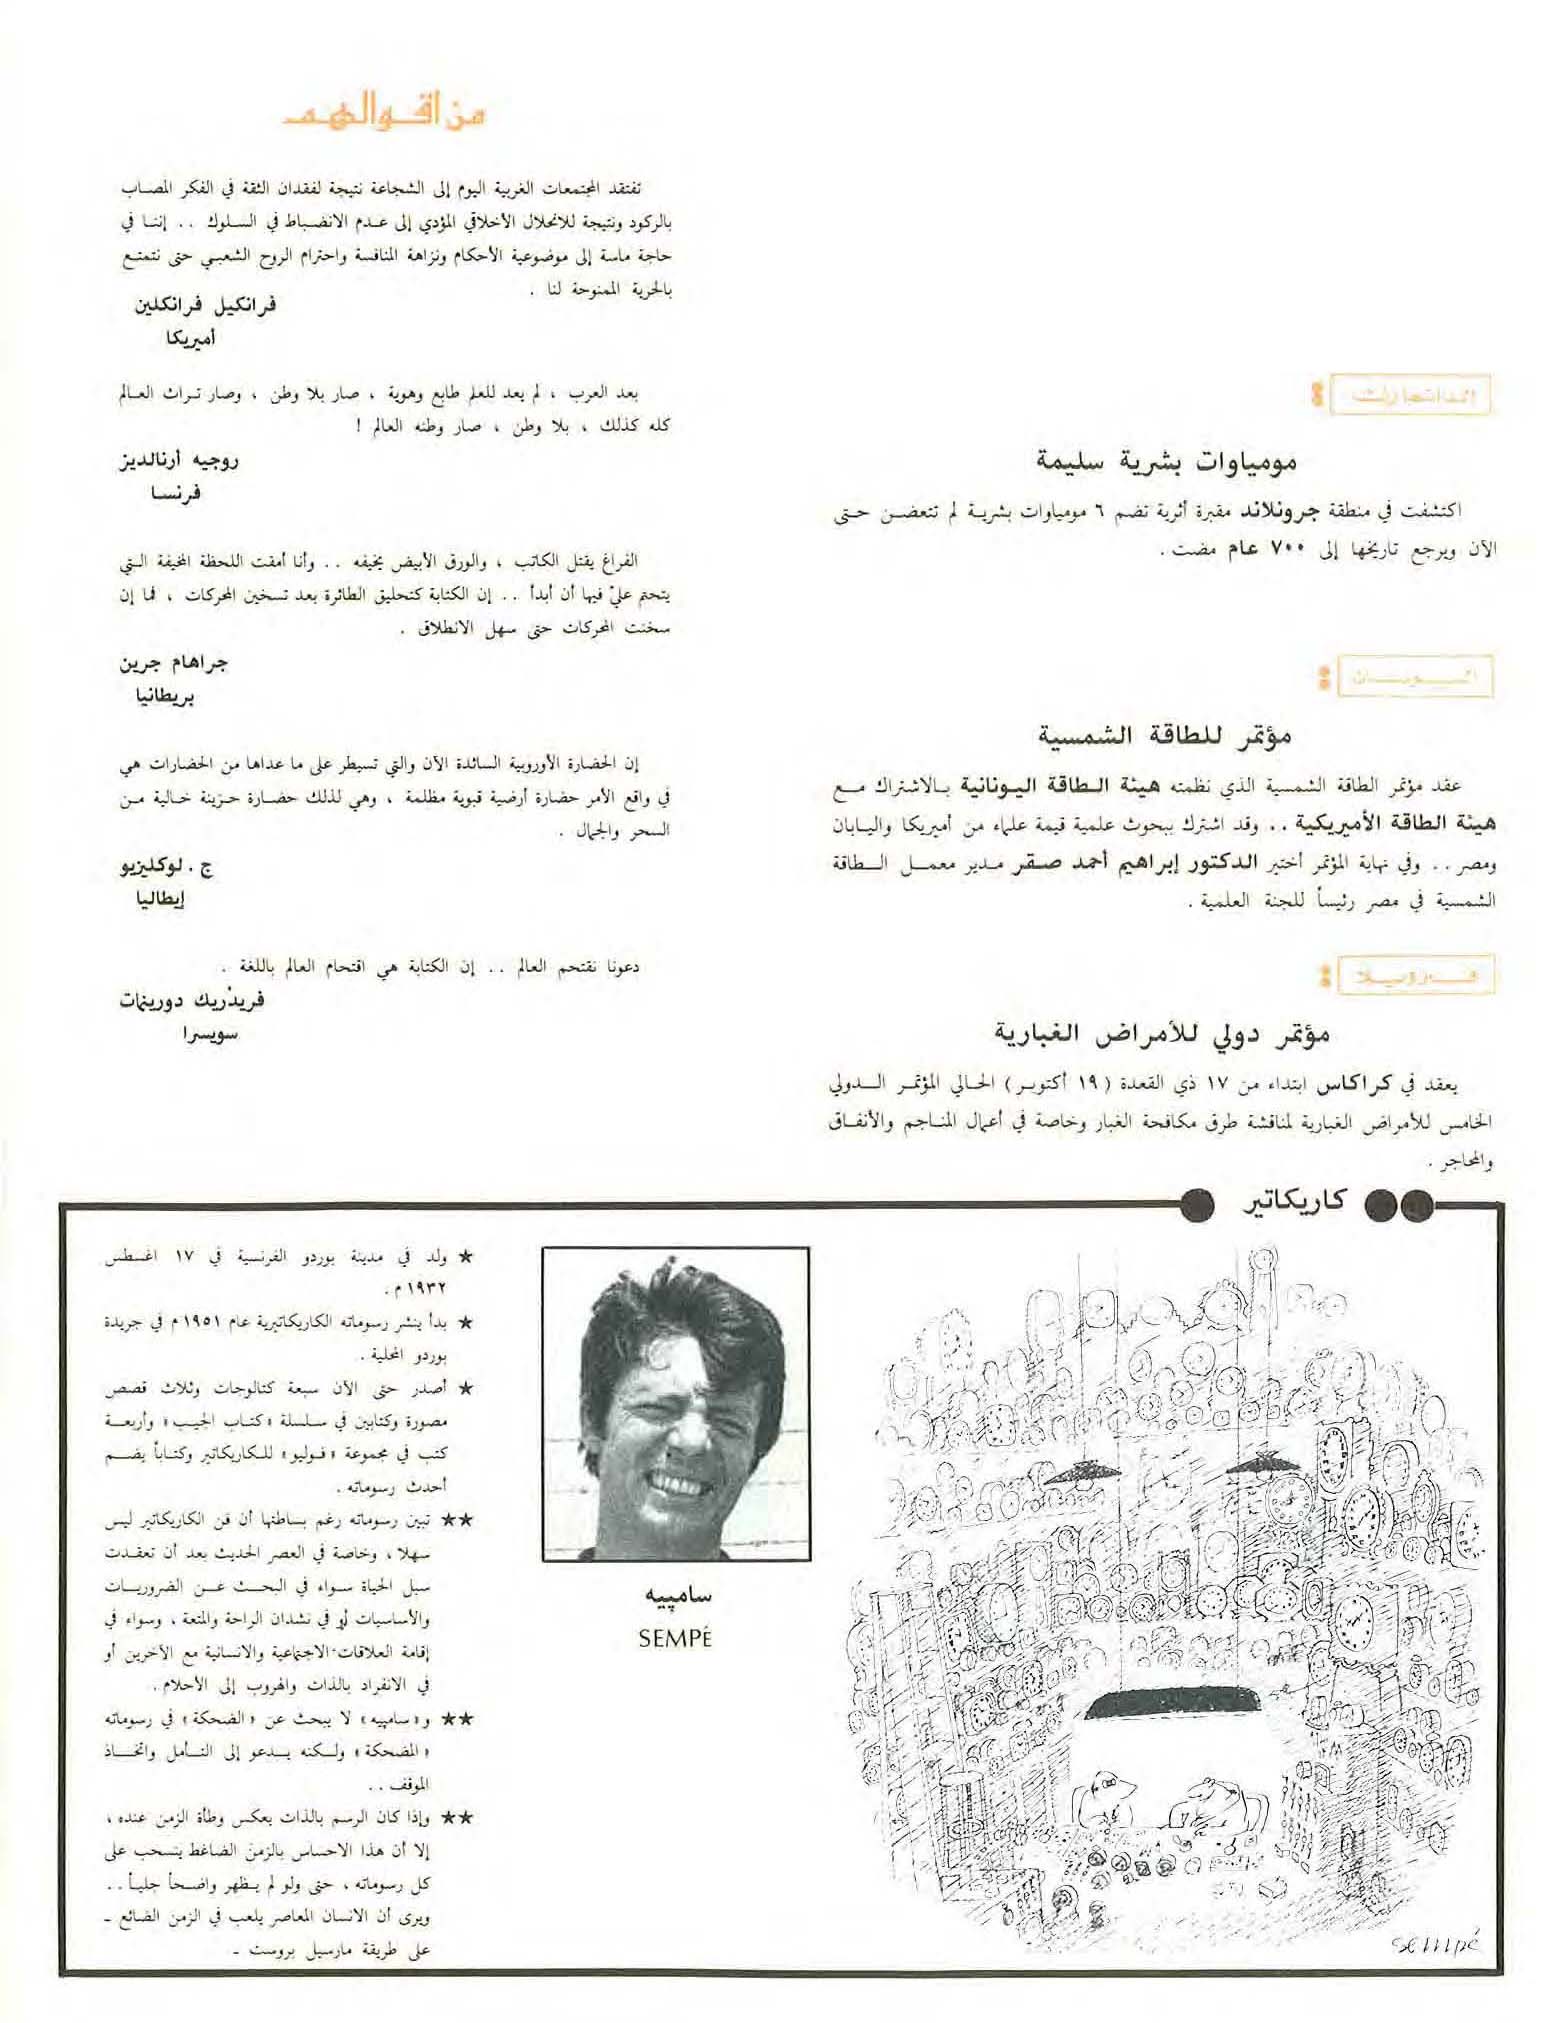 الدانمارك
مومياوات بشرية سليمة
اكتشفت في منطقة جرونلاند مقبرة أثرية تضم ٦ مومياوات بشرية لم تتعفن حتى
الآن ويرجع تاريخها إلى ٧٠٠ عام مضت .
اليونان
مؤتمر للطاقة الشمسية
عقد مؤتمر الطاقة الشمسية الذي نظمته هيئة الطاقة اليونانية بالاشتراك مع
هيئة الطاقة الأميريكية .. وقد اشترك ببحوث علمية قيمة علماء من أميريكا واليابان
ومصر .. وفي نهاية المؤتمر أختير الدكتور إبراهيم أحمد صقر مدير معمل الطاقة
الشمسية في مصر رئيساً للجنة العلمية .
فنزويلا
مؤتمر دولي للأمراض الغبارية
يعقد في كراكاس ابتداء من ١٧ ذي القعدة ( ١٩ أكتوبر ) الحالي المؤتمر الدولي
الخامس للأمراض الغبارية لمناقشة طرق مكافحة الغبار وخاصة في أعمال المناجم والأنفاق
والمحاجر .
من أقوالهم
تفتقد المجتمعات الغربية اليوم إلى الشجاعة نتيجة لفقدان الثقة في الفكر المصاب
بالركود ونتيجة للانحلال الأخلاقي المؤدي إلى عدم الانضباط في السلوك .. إننا في
حاجة ماسة إلى موضوعية الأحكام ونزاهة المنافسة واحترام الروح الشعبي حتى نتمتع
بالحرية الممنوحة لنا .
فرانكيل فرانكلين
أميريكا
بعد العرب ، لم يعد للعلم طابع وهوية ، صار بلا وطن ، وصار تراث العالم
كله كذلك ، بلا وطن ، صار وطنه العالم !
روجيه أرنالديز
فرنسا
الفراغ يقتل الكاتب ، والورق الأبيض يخيفه .. وأنا أمقت اللحظة المخيفة التي
يتحتم عليّ فيها أن أبدأ .. إن الكتابة كتحليق الطائرة بعد تسخين المحركات ، فما إن
سخنت المحركات حتى سهل الانطلاق .
جراهام جرين
بريطانيا
إن الحضارة الأوروبية السائدة الآن والتي تسيطر على ما عداها من الحضارات هي
في واقع الأمر حضارة أرضية قبوية مظلمة ، وهي لذلك حضارة حزينة خالية من
السحر والجمال .
ج . لوكليزيو
إيطاليا
دعونا نقتحم العالم .. إن الكتابة هي اقتحام العالم باللغة .
فريدريك دورينمات
سويسرا
كاريكاتير
sempé
سامپيه
SEMPÉ
★ ولد في مدينة بوردو الفرنسية في ١٧ اغسطس
١٩٣٢ م .
★ بدأ ينشر رسوماته الكاريكاتيرية عام ١٩٥١ م في جريدة
بوردو المحلية .
★ أصدر حتى الآن سبعة كتالوجات وثلاث قصص
مصورة وكتابين في سلسلة «كتاب الجيب» وأربعة
كتب في مجموعة «فوليو» للكاريكاتير وكتاباً يضم
أحدث رسوماته .
★★ تبين رسوماته رغم بساطتها أن فن الكاريكاتير ليس
سهلا ، وخاصة في العصر الحديث بعد أن تعقدت
سبل الحياة سواء في البحث عن الضروريات
والأساسيات أو في نشدان الراحة والمتعة ، وسواء في
إقامة العلاقات الاجتماعية والانسانية مع الآخرين أو
في الانفراد بالذات والهروب إلى الأحلام .
★★ و«سامپيه» لا يبحث عن «الضحكة» في رسوماته
«المضحكة» ولكنه يدعو إلى التأمل واتخاذ
الموقف ..
★★ وإذا كان الرسم بالذات يعكس وطأة الزمن عنده ،
إلا أن هذا الاحساس بالزمن الضاغط ينسحب على
كل رسوماته ، حتى ولو لم يظهر واضحاً جلياً ..
ويرى أن الانسان المعاصر يلعب في الزمن الضائع -
على طريقة مارسيل بروست -